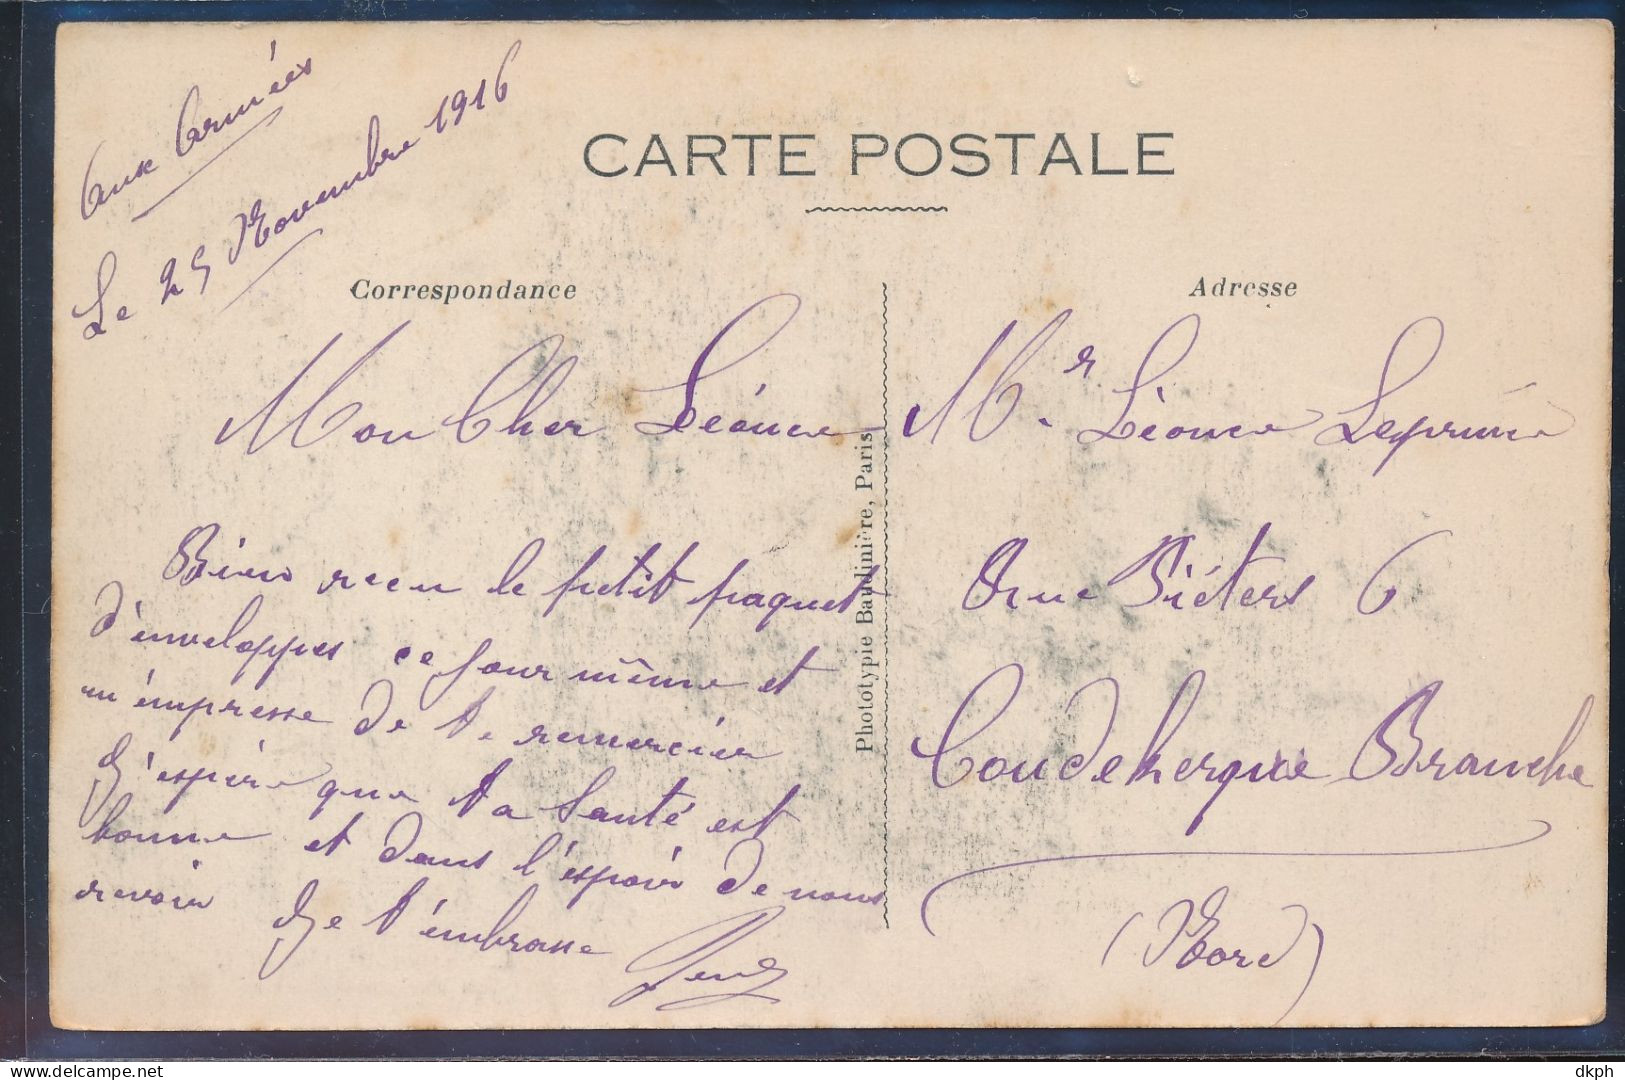 Aux Armées
Le 25 Novembre 1916
CARTE POSTALE
Correspondance
Mon Cher Léonce
Bien reçu le petit paquet
d'enveloppes ce jour même et
m'empresse de te remercier
J'espère que ta Santé est
bonne et dans l'espoir de nous
revoir Je t'embrasse
Phototypie Baudinière, Paris
Adresse
Mr. Léonce
Rue Piéters 6
Coudekerque Branche
(Nord)
delcampe.net
dkph